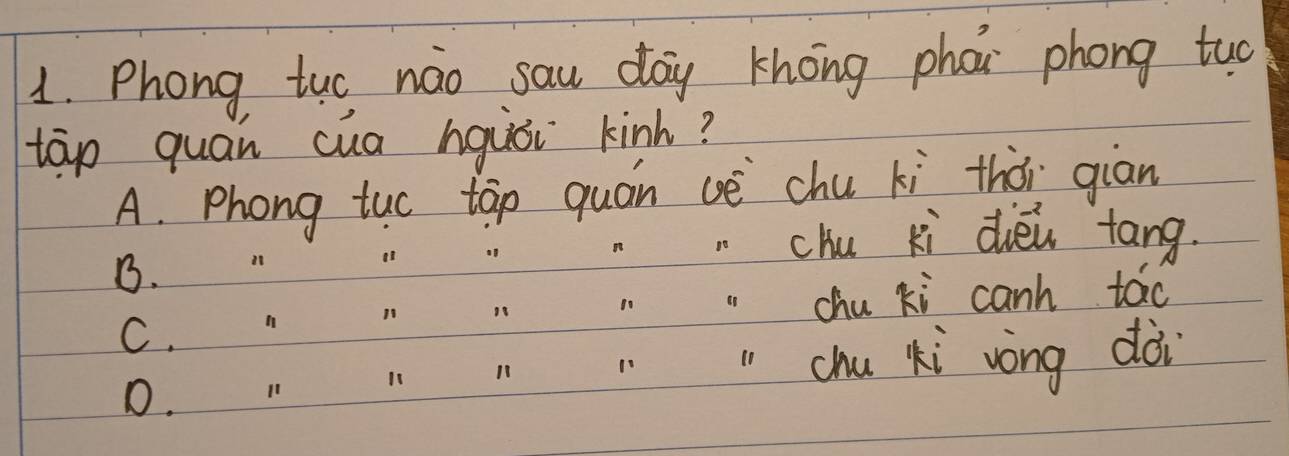 1. Phong tục nào sau đây không phải phong tục
tập quán của người kinh?
A. Phong tục tập quán về chu kì thời gian
B. " " " " " chu kì điếu tang.
C. " " " " " chu kì canh tác
D. " " " " " chu kì vòng đời